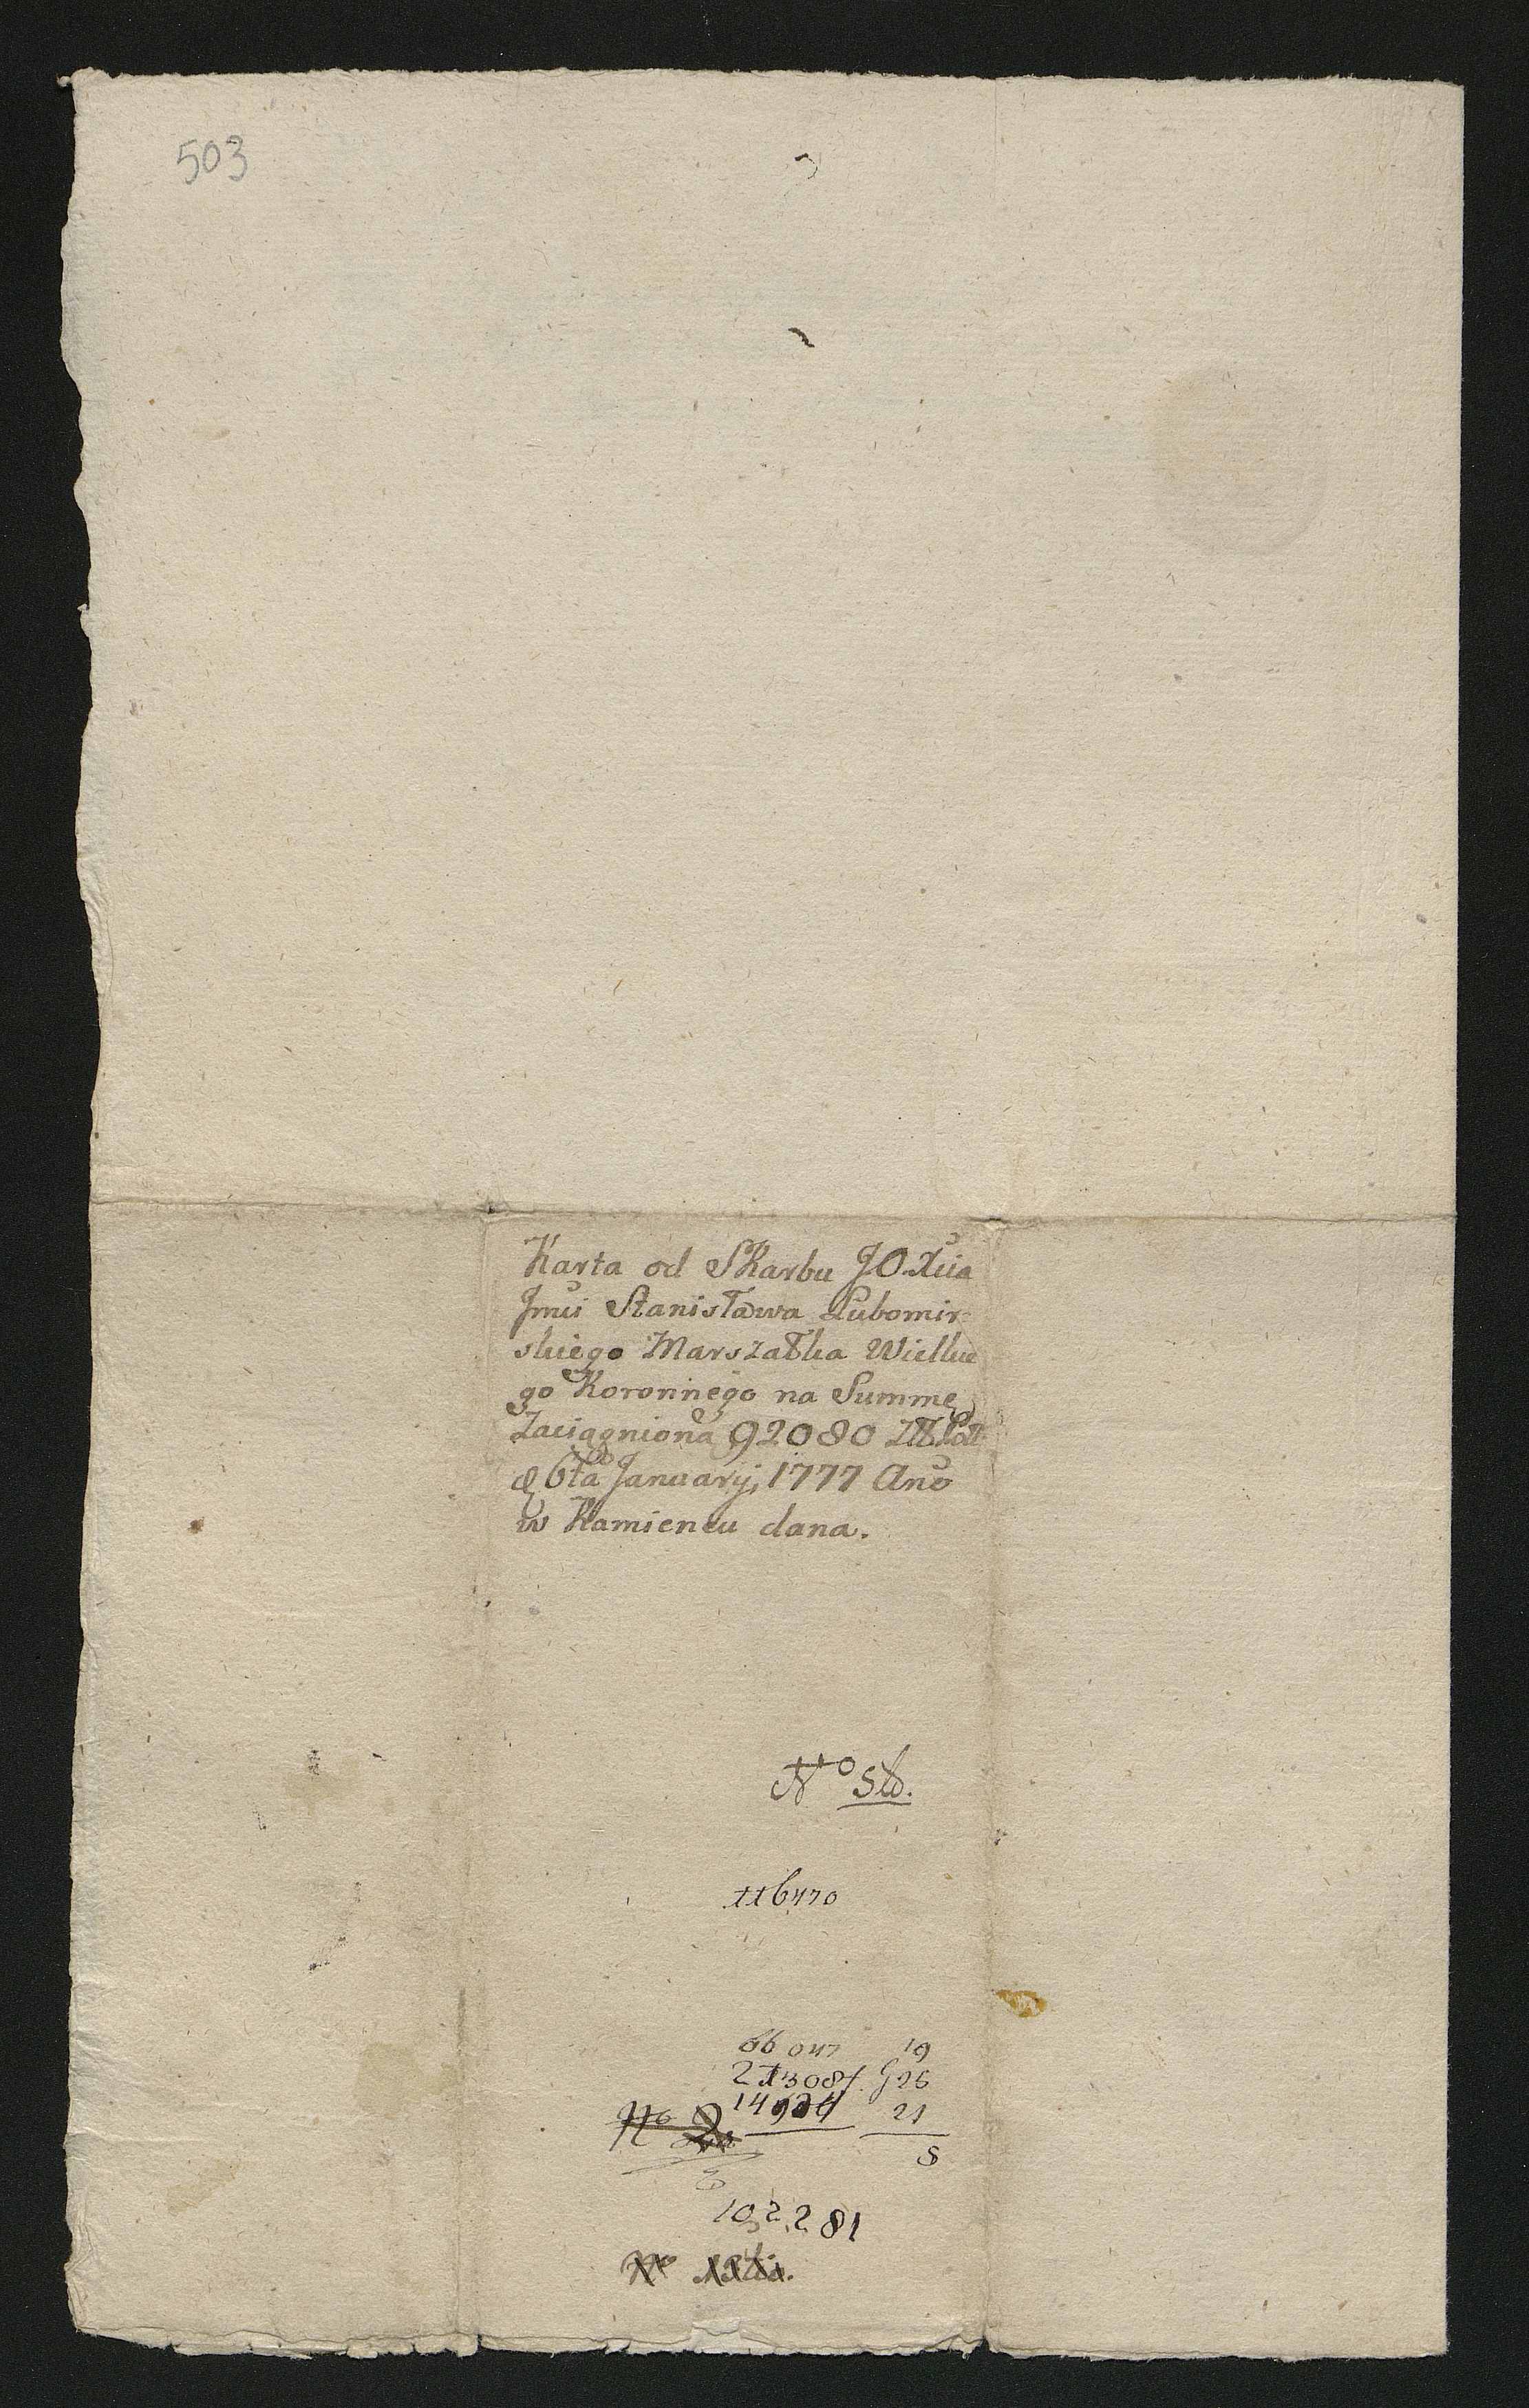 503
Karta od Skarbu JO Xcia
Jmci Stanisława Lubomir-
skiego Marszałka Wielkie
go Koronnego na Summę
Zaciągnioną 92080 Złł Poll
d 6ta January, 1777 Ano
w Kamieńcu dana.
No 5to.
116470
66047 19
213087. g 26
14924 21
No
8
102281
No